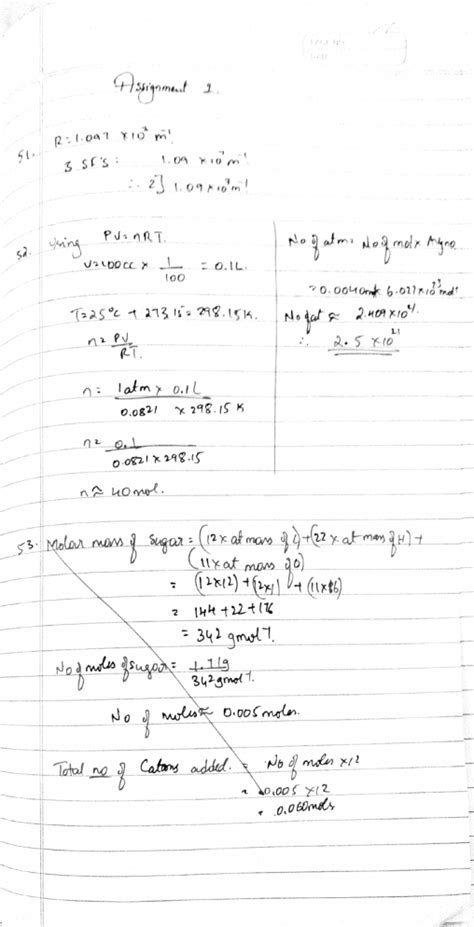 Assignment 1.
51. R = 1.097 × 10⁷ m⁻¹
3 SF's : 1.09 × 10⁷ m⁻¹
∴ 2] 1.09 × 10⁷ m⁻¹
52. Using PV = nRT.
V = 100cc × 1/100 = 0.1L
T = 25°C + 273.15 = 298.15K.
n = PV/RT.
n = 1atm × 0.1L / 0.0821 × 298.15 K
n = 0.1 / 0.0821 × 298.15
n ≈ 40mol.
No of atm = No of mol ×
No of at ≈ 2.409 × 10
∴ 2.5 × 10²¹
53. Molar mass of sugar = (12 × at mass of C) + (22 × at mass of H) +
(11 × at mass of O)
= (12×12) + (2×1) + (11×16)
= 144 + 22 + 176
= 342 gmol⁻¹.
No of moles of sugar = 1.71g / 342gmol⁻¹.
No of moles ≈ 0.005 moles.
Total no of C atoms added. = No of moles × 12
= 0.005 × 12
= 0.060mols